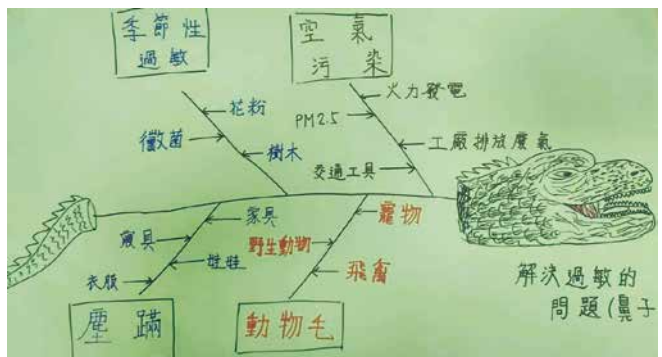 季節性
過敏
空氣
污染
花粉
黴菌
樹木
火力發電
PM2.5
工廠排放廢氣
交通工具
家具
寢具
娃娃
衣服
塵蹣
寵物
野生動物
飛禽
動物毛
解決過敏的
問題(鼻子